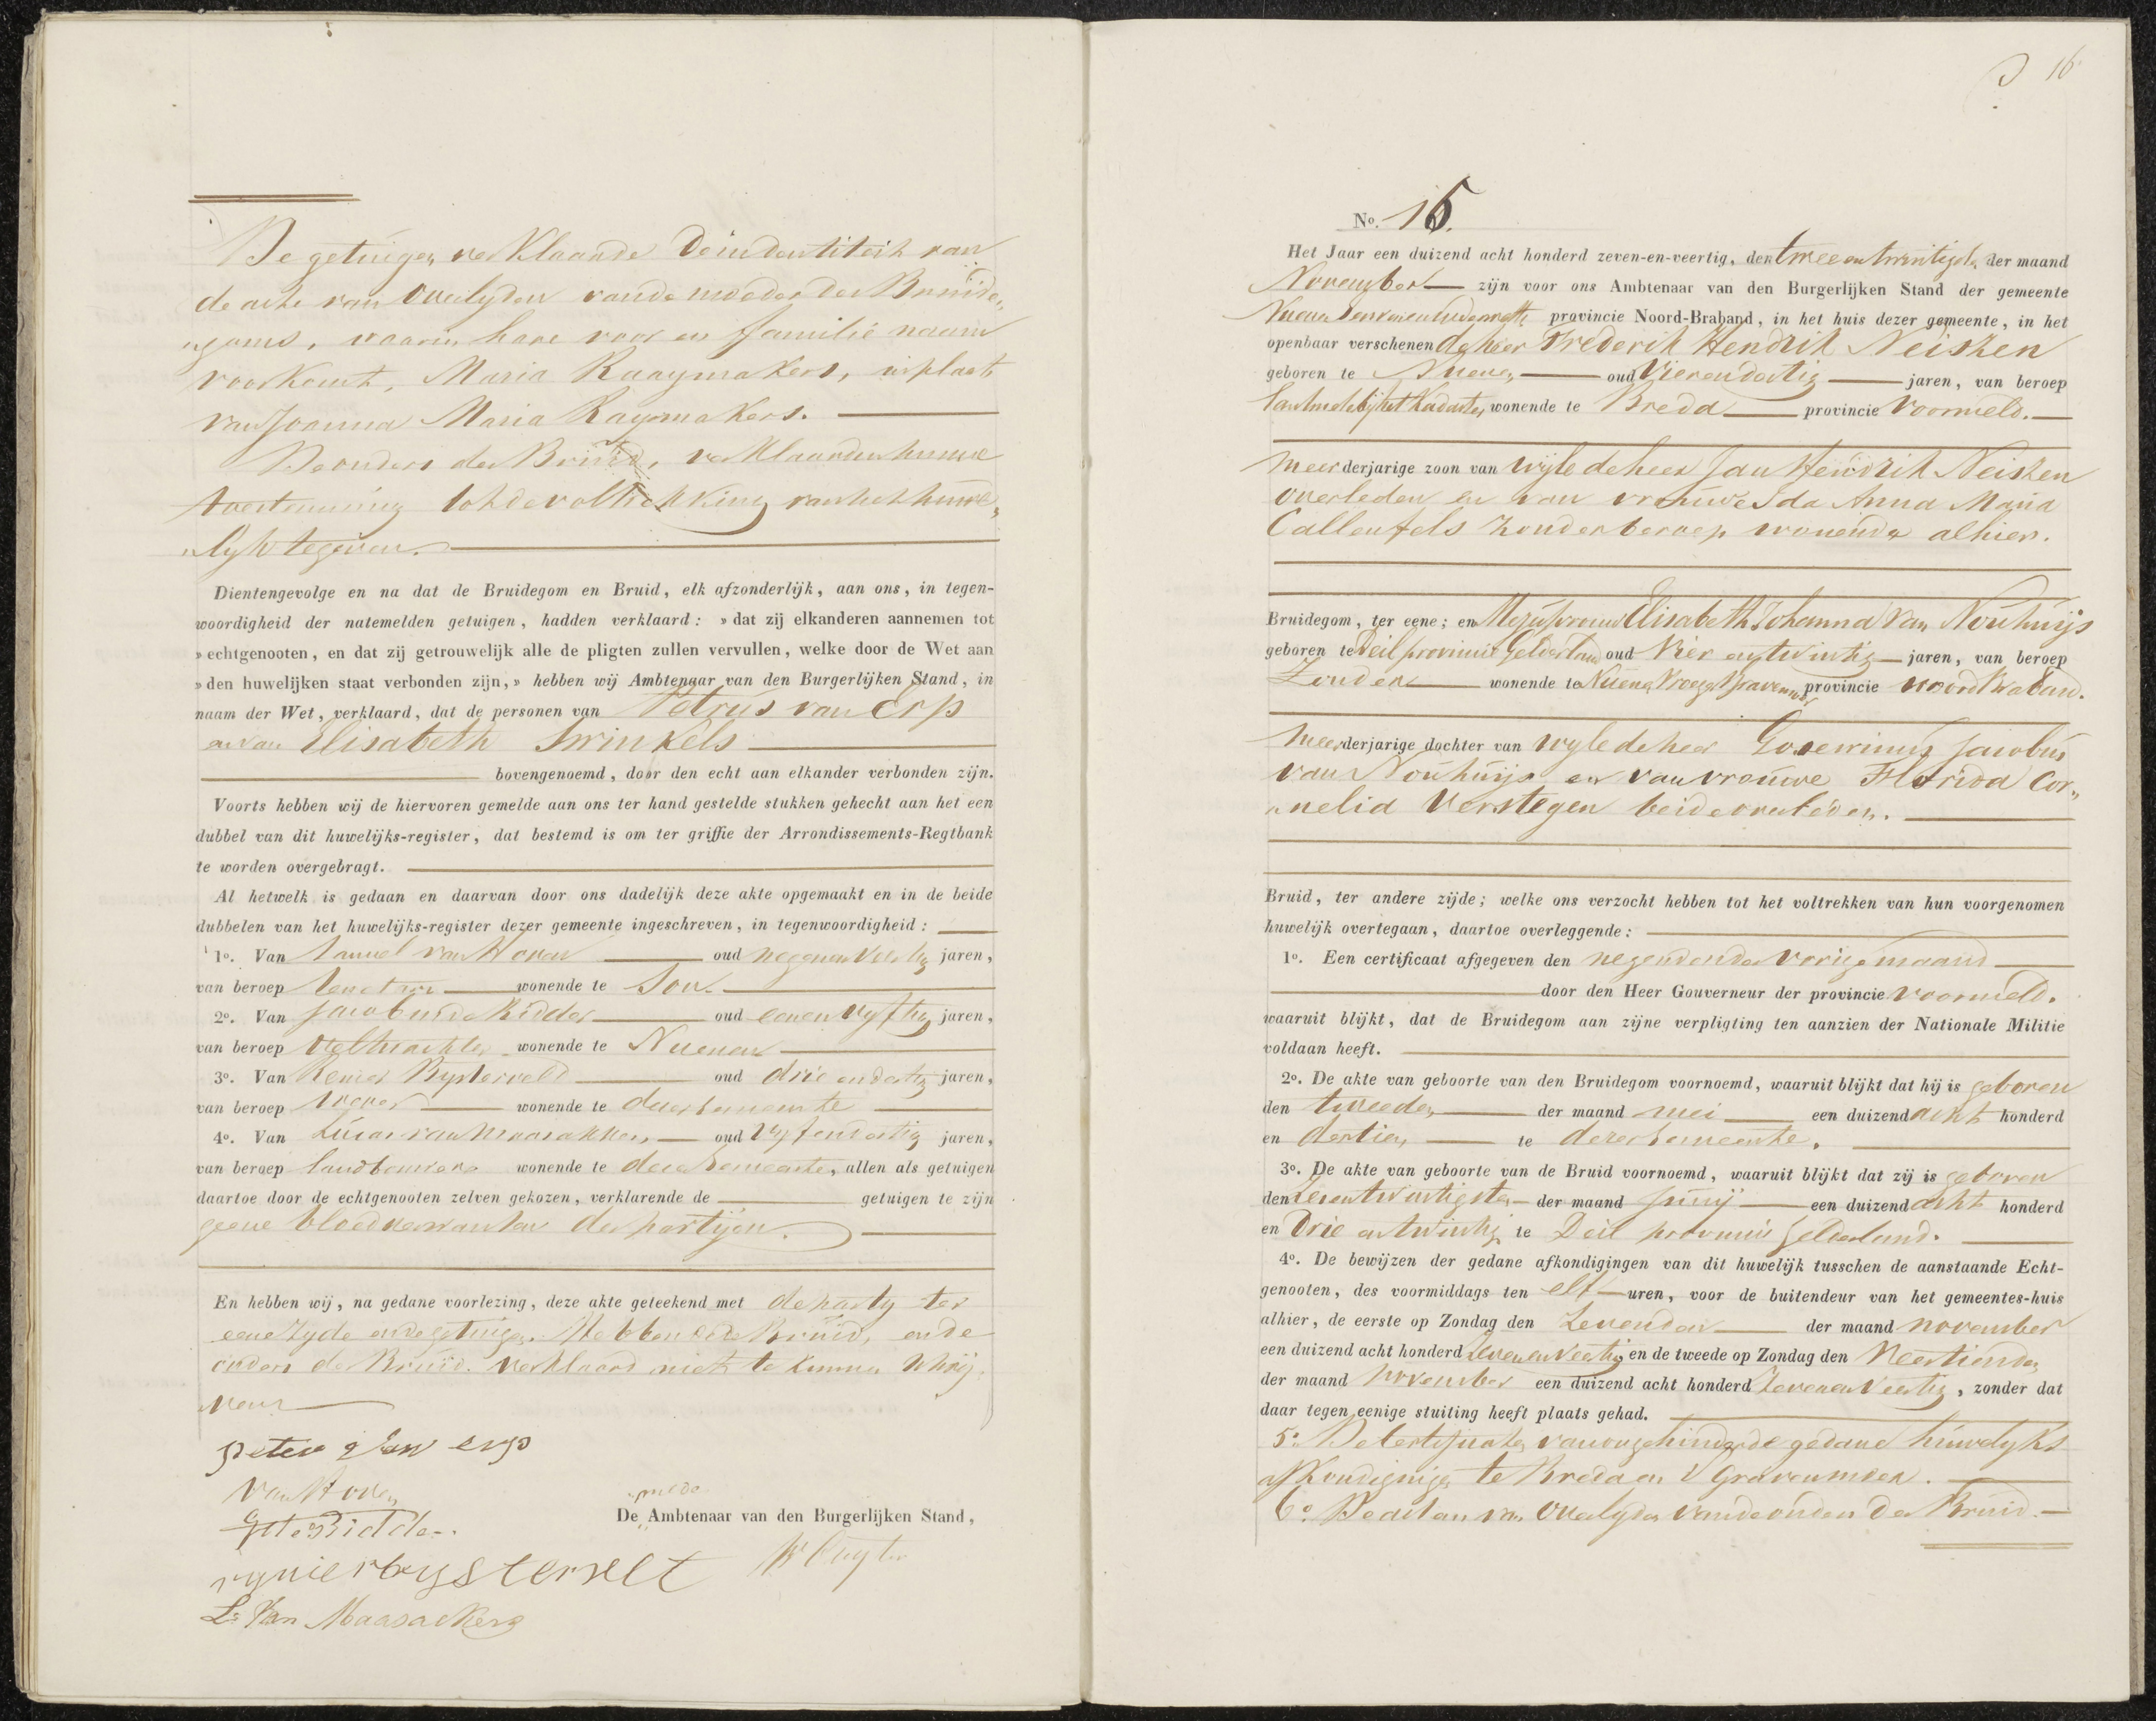 De getuigen verklaarde de indentiteit van
de acte van Overlyden van de moeder des Bruide„
„goms, waarin hare voor en familie naam
voorkomt, Maria Raaymakers, in plaats
van Joanna Maria Raymakers.
De ouders der Bruid, verklaarden hunne
toestemming tot de voltrekking van het huwe„
„lyk te geven.
Dientengevolge en na dat de Bruidegom en Bruid, elk afzonderlijk, aan ons, in tegen-
woordigheid der natemelden getuigen, hadden verklaard: » dat zij elkanderen aannemen tot
» echtgenooten, en dat zij getrouwelijk alle de pligten zullen vervullen, welke door de Wet aan
» den huwelijken staat verbonden zijn, » hebben wij Ambtenaar van den Burgerlijken Stand, in
naam der Wet, verklaard, dat de personen van Petrus van Erp
en van Elisabeth Swinkels
bovengenoemd, door den echt aan elkander verbonden zijn.
Voorts hebben wij de hiervoren gemelde aan ons ter hand gestelde stukken gehecht aan het een
dubbel van dit huwelijks-register, dat bestemd is om ter griffie der Arrondissements-Regtbank
te worden overgebragt.
Al hetwelk is gedaan en daarvan door ons dadelijk deze akte opgemaakt en in de beide
dubbelen van het huwelijks-register dezer gemeente ingeschreven, in tegenwoordigheid:
1o. Van Samuel van Hoven oud negenenveertig jaren,
van beroep wonende te Son.
2o. Van Jacobus de Ridder oud eenenvyftig jaren,
van beroep Veldwachter wonende te Nuenen
3o. Van Renier Bysterveld oud drie en dertig jaren,
van beroep wever wonende te dezer Gemeente
4o. Van Lucas van Maasakkers oud vyfendertig jaren,
van beroep landbouwer wonende te dezer Gemeente, allen als getuigen
daartoe door de echtgenooten zelven gekozen, verklarende de getuigen te zijn
geene bloedverwanten der partijen.
En hebben wij, na gedane voorlezing, deze akte geteekend met de party ter
eene Zyde en de getuigen. Hebbende de Bruid, en de
ouders der Bruid. verklaard niet te kunnen schrij„
„ven
peter van erp
van Hoven
J de Ridder.
rynier bystervelt
L: Van Maasackers
De Ambtenaar van den Burgerlijken Stand,
16
No. 15.
Het Jaar een duizend acht honderd zeven-en-veertig, den tweeentwintigste, der maand
November zijn voor ons Ambtenaar van den Burgerlijken Stand der gemeente
Nuenen Gerwen en Nederwette provincie Noord-Braband, in het huis dezer gemeente, in het
openbaar verschenen de heer Frederik Hendrik Neisken
geboren te Nuenen oud Vierendertig jaren, van beroep
Landmeter by het Kadaster, wonende te Breda provincie Voormeld.
meerderjarige zoon van wyle de heer Jan Hendrik Neisken
overleden en van vrouwe Ida Anna Maria
Callenfels zonder beroep wonende alhier.
Bruidegom, ter eene; en Mejufvrouw Elisabeth Johanna van Nouhuijs
geboren te Deil provincie Gelderland oud Vier en twintig jaren, van beroep
Zonder wonende te Nuenen Vroeger 'sGravenmoer provincie noord Braband.
meerderjarige dochter van wyle de heer Goverinus Jacobus
van Nouhuijs en van vrouwe Florida Cor„
„nelia Verstegen beide overleden.
Bruid, ter andere zijde; welke ons verzocht hebben tot het voltrekken van hun voorgenomen
huwelijk overtegaan, daartoe overleggende:
1o. Een certificaat afgegeven den negenden der vorige maand
door den Heer Gouverneur der provincie voormeld.
waaruit blijkt, dat de Bruidegom aan zijne verpligting ten aanzien der Nationale Militie
voldaan heeft.
2o. De akte van geboorte van den Bruidegom voornoemd, waaruit blijkt dat hij is geboren
den tweeden der maand mei een duizend acht honderd
en dertien te dezer Gemeente.
3o. De akte van geboorte van de Bruid voornoemd, waaruit blijkt dat zij is geboren
den Zevenentwintigsten der maand Junij een duizend acht honderd
en Drie en twintig te Deil provincie Gelderland.
4o. De bewijzen der gedane afkondigingen van dit huwelijk tusschen de aanstaande Echt-
genooten, des voormiddags ten elf uren, voor de buitendeur van het gemeentes-huis
alhier, de eerste op Zondag den Zevenden der maand november
een duizend acht honderd Zevenenveertig en de tweede op Zondag den Veertienden
der maand November een duizend acht honderd Zevenenveertig, zonder dat
daar tegen eenige stuiting heeft plaats gehad.
5o. De Certificaten van ongehinderde gedane huwelyks
afkondigingen te Breda en 's Gravenmoer.
6o. De acten van Overlyden van de ouders der Bruid.